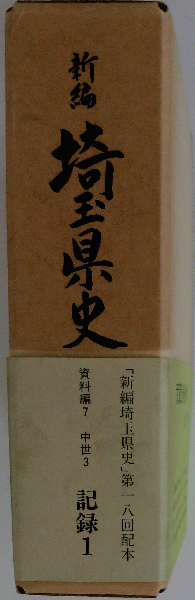 新編
埼玉県史
「新編埼玉県史」第一八回配本
資料編7 中世3
記録1